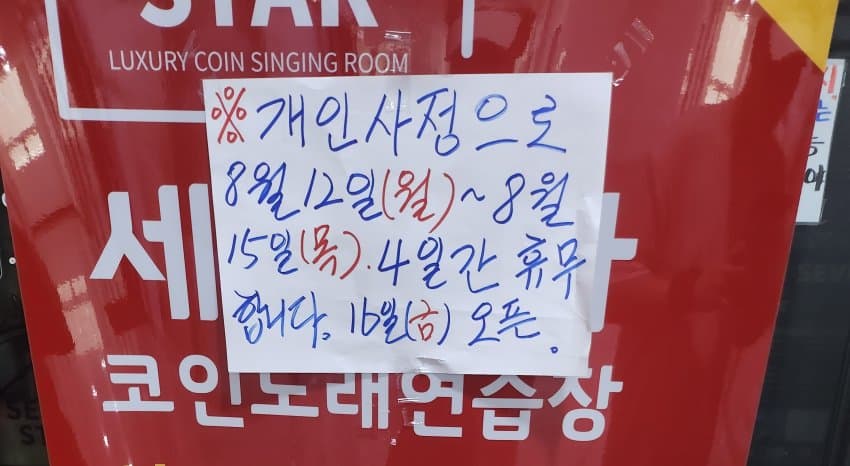 STAR
LUXURY COIN SINGING ROOM
※ 개인사정으로
8월 12일(월) ~ 8월
15일(목). 4일간 휴무
합니다. 16일(금) 오픈.
세
코인노래연습장